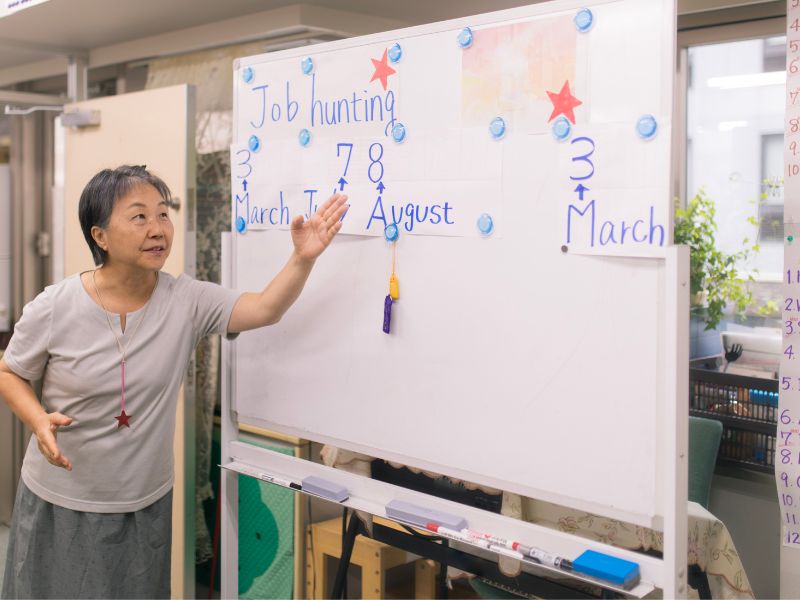 Job hunting
3 7 8 3
March July August March
3
4
5
6
7
8
9.
10
1.
2.
3.
4.
5.
6.
7.
8.
9.
10.
11.
12